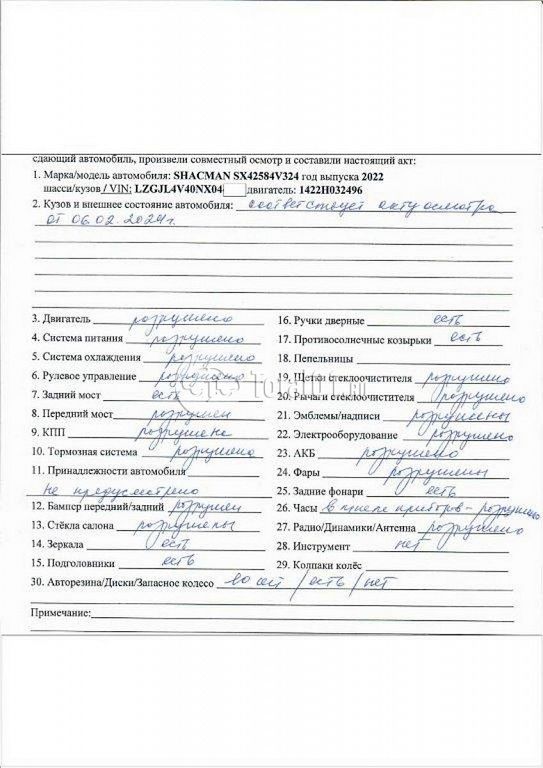 сдающий автомобиль, произвели совместный осмотр и составили настоящий акт:
1. Марка/модель автомобиля: SHACMAN SX42584V324 год выпуска 2022
шасси/кузов / VIN: LZGJL4V40NX04 двигатель: 1422H032496
2. Кузов и внешнее состояние автомобиля: соответствует акту осмотра
от 06.02.2024г.
3. Двигатель разрушено
4. Система питания разрушено
5. Система охлаждения разрушено
6. Рулевое управление разрушено
7. Задний мост есть
8. Передний мост разрушен
9. КПП разрушена
10. Тормозная система разрушена
11. Принадлежности автомобиля
не предусмотрено
12. Бампер передний/задний разрушен
13. Стёкла салона разрушены
14. Зеркала есть
15. Подголовники есть
16. Ручки дверные есть
17. Противосолнечные козырьки есть
18. Пепельницы
19. Щетки стеклоочистителя разрушено
20. Рычаги стеклоочистителя разрушено
21. Эмблемы/надписи разрушены
22. Электрооборудование разрушено
23. АКБ разрушено
24. Фары разрушены
25. Задние фонари есть
26. Часы в панеле приборов - разрушено
27. Радио/Динамики/Антенна разрушено
28. Инструмент нет
29. Колпаки колёс
30. Авторезина/Диски/Запасное колесо / есть / нет
Примечание: